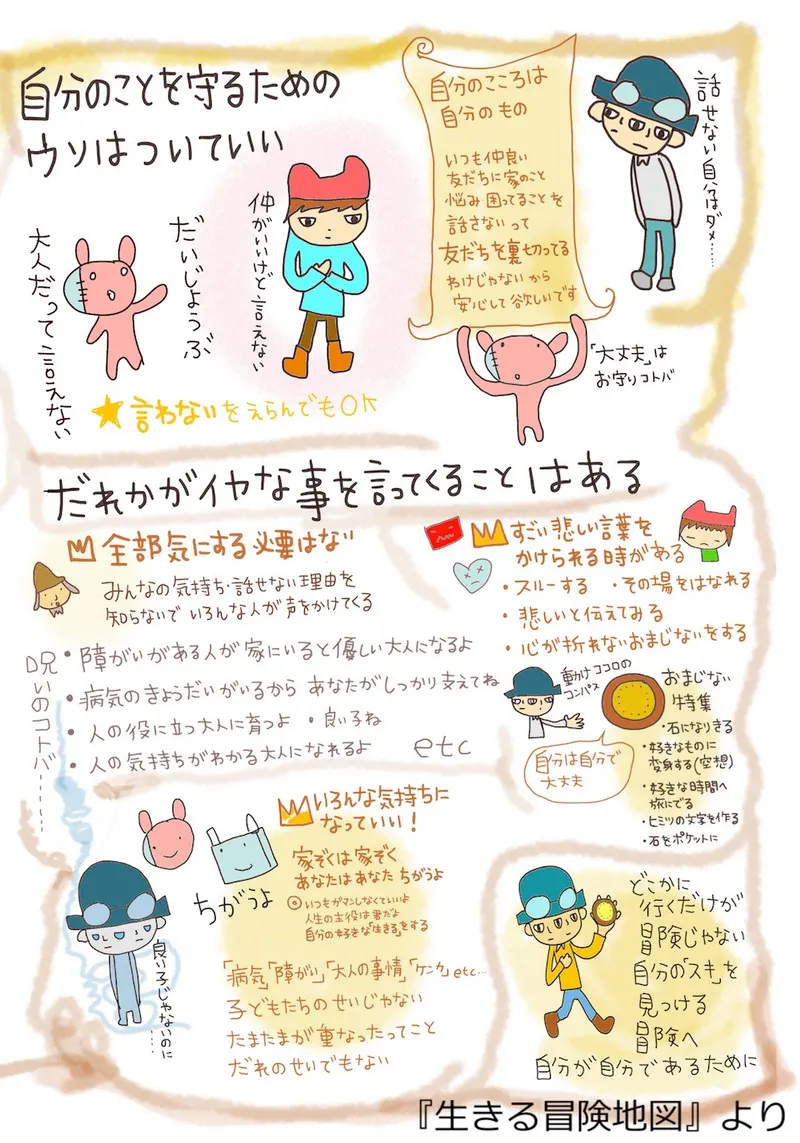 自分のことを守るための
ウソはついていい
大人だって言えない
だいじょうぶ
仲がいいけど言えない
★言わないをえらんでもOK
自分のこころは
自分のもの
いつも仲良い
友だちに家のこと
悩み困ってることを
話さないって
友だちを裏切ってる
わけじゃないから
安心して欲しいです
話せない自分はダメ……
「大丈夫」は
お守りコトバ
だれかがイヤな事を言ってくることはある
全部気にする必要はない
みんなの気持ち・話せない理由を
知らないでいろんな人が声をかけてくる
呪いのコトバ……
・障がいがある人が家にいると優しい大人になるよ
・病気のきょうだいがいるからあなたがしっかり支えてね
・人の役に立つ大人に育つよ ・良い子ね
・人の気持ちがわかる大人になれるよ etc
すごい悲しい言葉を
かけられる時がある
・スルーする ・その場をはなれる
・悲しいと伝えてみる
・心が折れないおまじないをする
動けココロの
コンパス
自分は自分で
大丈夫
おまじない
特集
・石になりきる
・好きなものに
変身する(空想)
・好きな時間へ
旅にでる
・ヒミツの文字を作る
・石をポケットに
いろんな気持ちに
なっていい！
家ぞくは家ぞく
あなたはあなた ちがうよ
◎いつもガマンしなくていいよ
人生の主役は君だよ
自分の好きな「生きる」をする
ちがうよ
良い子じゃないのに……
「病気」「障がい」「大人の事情」「ケンカ」etc…
子どもたちのせいじゃない
たまたまが重なったってこと
だれのせいでもない
どこかに
行くだけが
冒険じゃない
自分の「スキ」を
見つける
冒険へ
自分が自分であるために
『生きる冒険地図』より